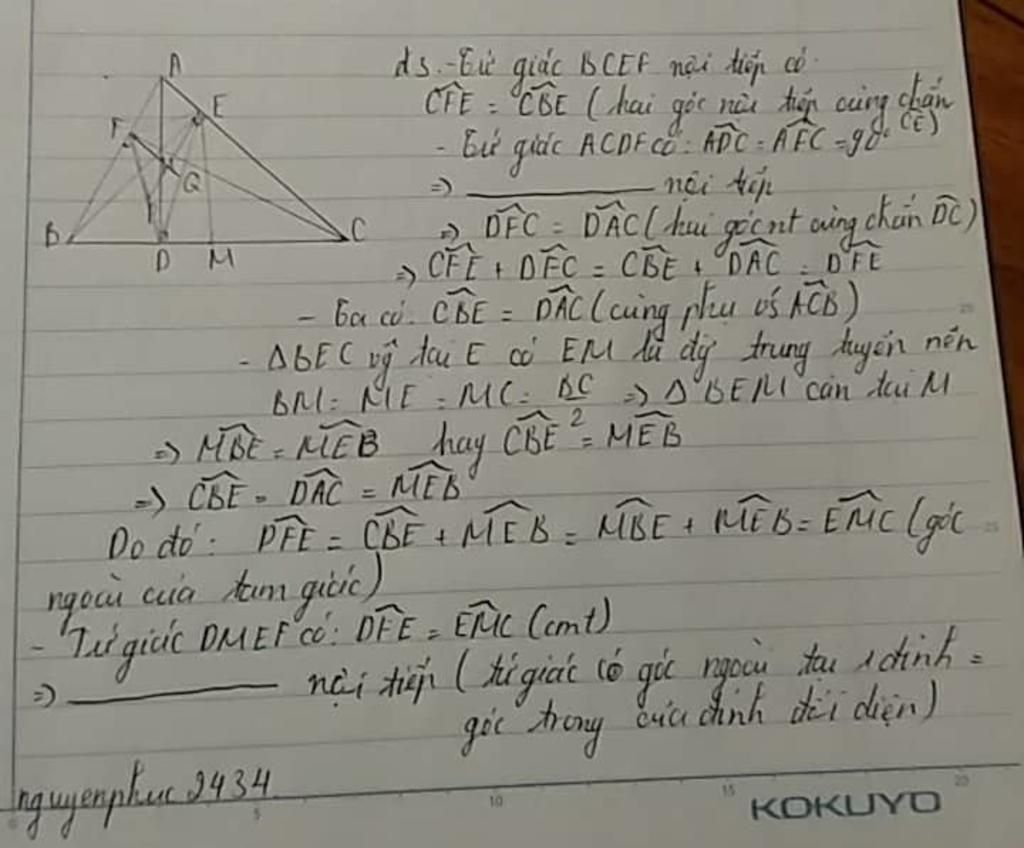 A
E
F
Q
B
C
D
M
ds.-Tứ giác BCEF nội tiếp có
CFE = CBE (hai góc nội tiếp cùng chắn CE)
- Tứ giác ACDF có: ADC = AFC = 90°
=> ________ nội tiếp
=> DFC = DAC (hai góc nt cùng chắn DC)
=> CFE + DFC = CBE + DAC = DFE
- Ta có: CBE = DAC (cùng phụ vs ACB)
- ΔBEC vg tại E có EM là đg trung tuyến nên
BM = ME = MC = BC/2 => ΔBEM cân tại M
=> MBE = MEB hay CBE = MEB
=> CBE = DAC = MEB
Do đó: DFE = CBE + MEB = MBE + MEB = EMC (góc
ngoài của tam giác)
- Tứ giác DMEF có: DFE = EMC (cmt)
=> ________ nội tiếp (tứ giác có góc ngoài tại 1 đỉnh =
góc trong của đỉnh đối diện)
nguyenphuc2434
5 10 15 20
KOKUYO